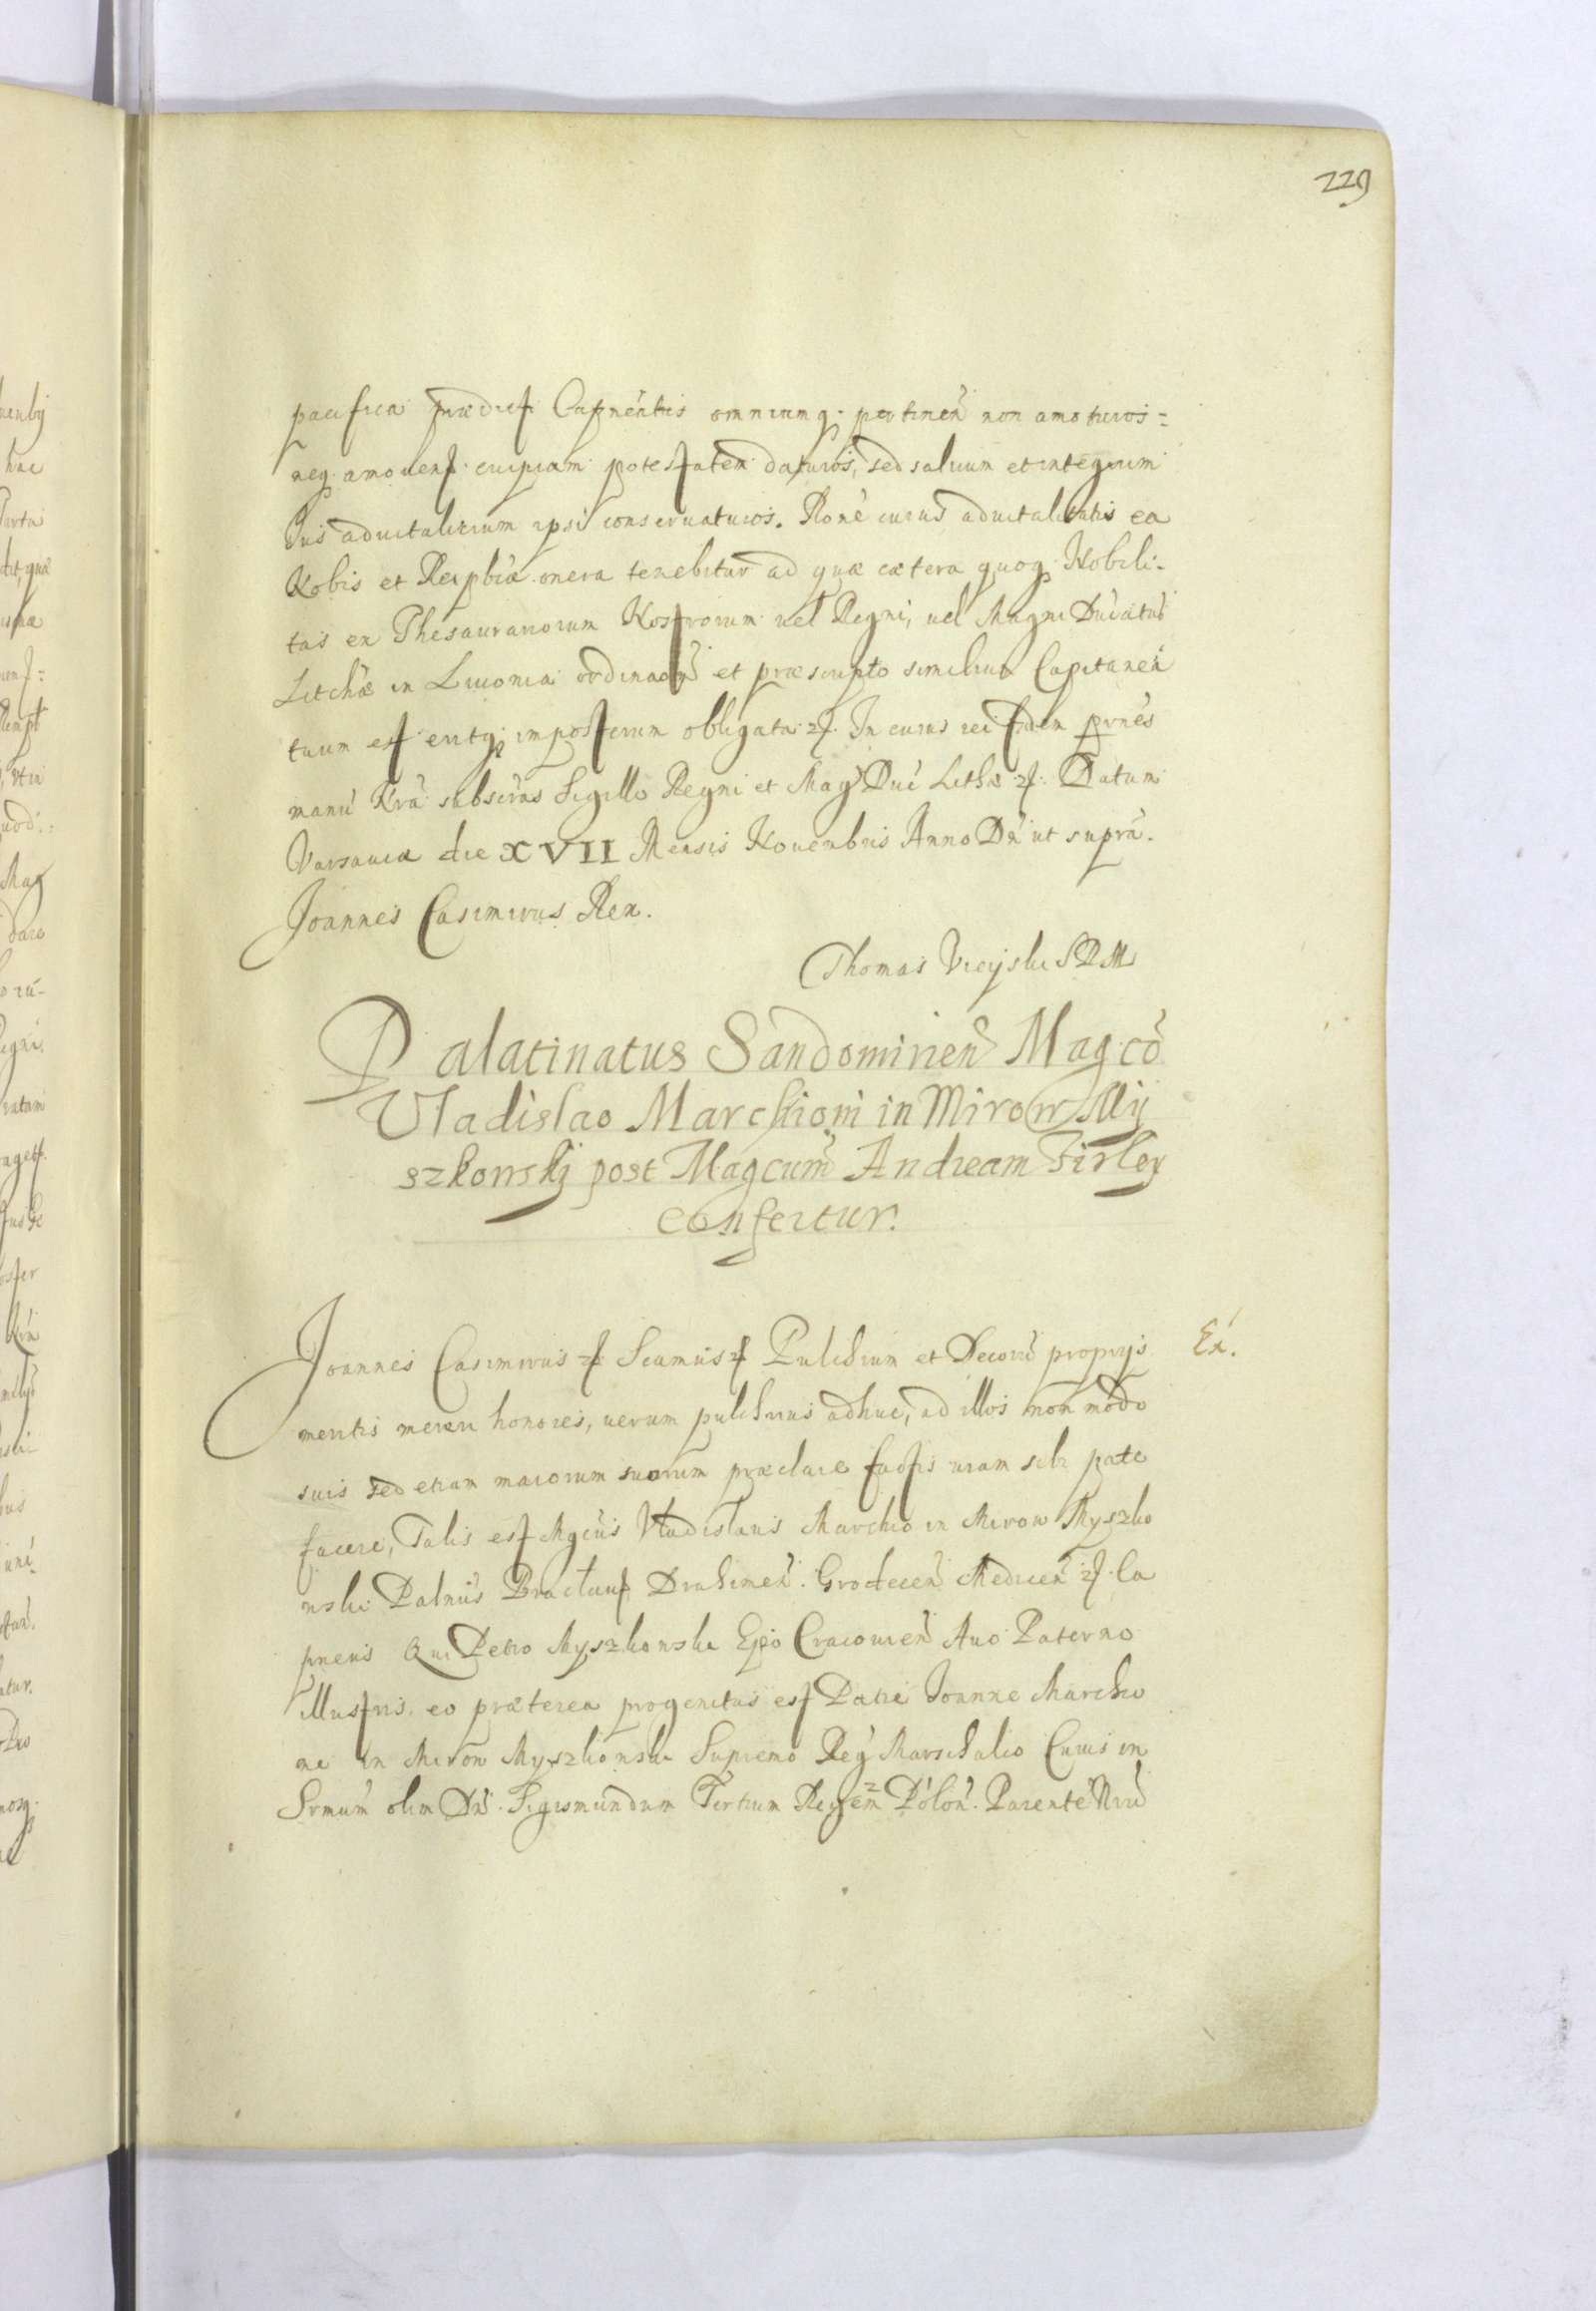 229
pacifica prædict Capneatus omniumq. pertinen̄ non amoturos=
neq. amouend. cuipiam potestatem daturos, sed saluum et integrum
Ius aduitalitium ipsi conseruaturos. Rone cuius aduitalitatis ea
Nobis et Reipblæ onera tenebitur ad quæ cætera quoq. Nobili-
tas ex Thesaurariorum Nostrorum uel Regni, uel Magni Ducatus
Litchæ in Liuonia ordinaōn et præscripto similium Capitanea
tuum est eritq. imposterum obligata &. In cuius rei fidem pntes
manu Nra subscras Sigillo Regni et Mag Duc Lithæ &. Datum
Varsauiæ die XVII Mensis Nouembris Anno Dn̄ ut supra.
Joannes Casimirus Rex.
Thomas Vieyski SRM
Palatinatus Sandomirien̄ Mag.co
Vladislao Marchioni in Mirow My
szkowskj post Magcum Andream Firley
confertur.
Joannes Casimirus & Scamus & Pulchrum et Decoru proprys Ex.
meritis mereri honores, uerum pulchrius adhuc, ad illos non modo
suis sed etiam maiorum suorum præclare factis uiam sibi pate
facere, Talis est Mgcus Vladislaus Marchio in Mirow Myszko
wski Palnus Braclauj Drahimen̄. Grodecen̄ Medicen̄ &. Ca
pneus Qui Petro Myszkowski Epo Cracouien̄ Auo Paterno
illustris, eo præterea progenitus est Patre Joanne Marchio
ne in Mirow Myszkowski Supremo Reg Marschalco Cuius in
Srmum olim Dn̄. Sigismundum Tertium Regem Polon̄. Parente Nru